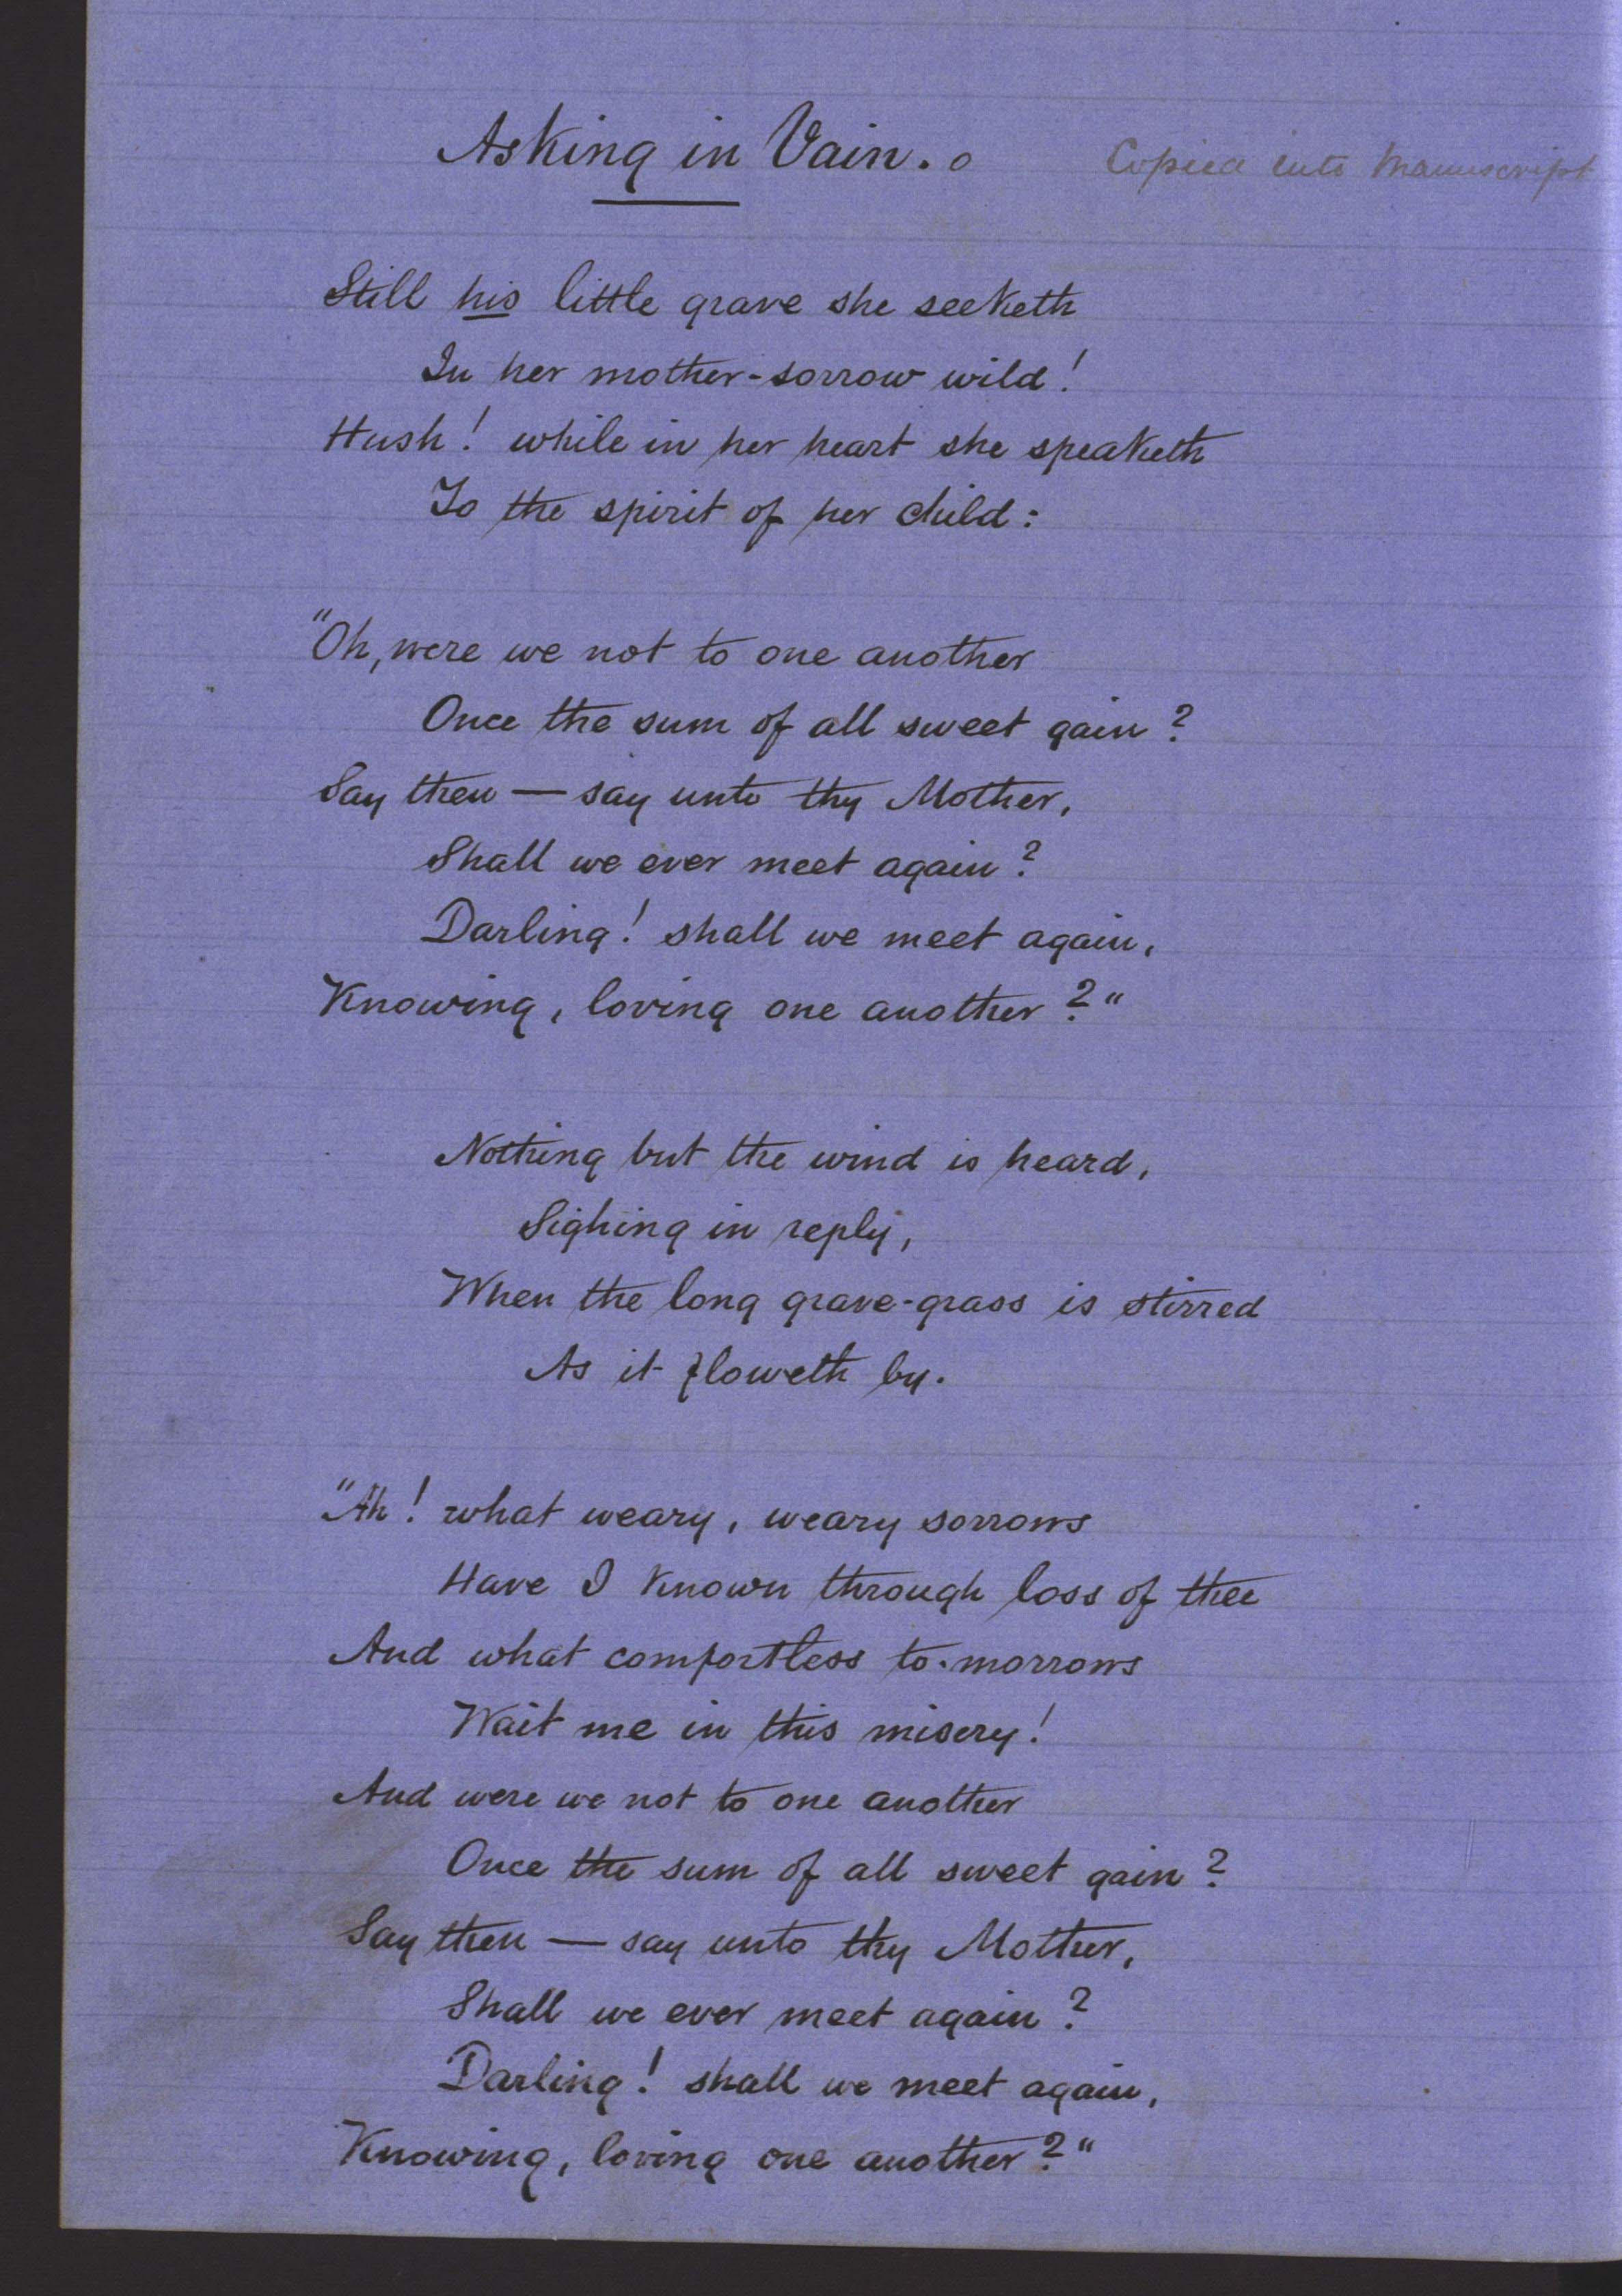 Asking in Vain. o
Copied into Manuscript
Still his little grave she seeketh
In her mother-sorrow wild!
Hush! while in her heart she speaketh
To the spirit of her child:
"Oh, were we not to one another
Once the sum of all sweet gain?
Say then — say unto thy Mother,
Shall we ever meet again?
Darling! shall we meet again,
Knowing, loving one another?"
Nothing but the wind is heard,
Sighing in reply,
When the long grave-grass is stirred
As it floweth by.
"Ah! what weary, weary sorrows
Have I known through loss of thee
And what comfortless to-morrows
Wait me in this misery!
And were we not to one another
Once the sum of all sweet gain?
Say then — say unto thy Mother,
Shall we ever meet again?
Darling! shall we meet again,
Knowing, loving one another?"